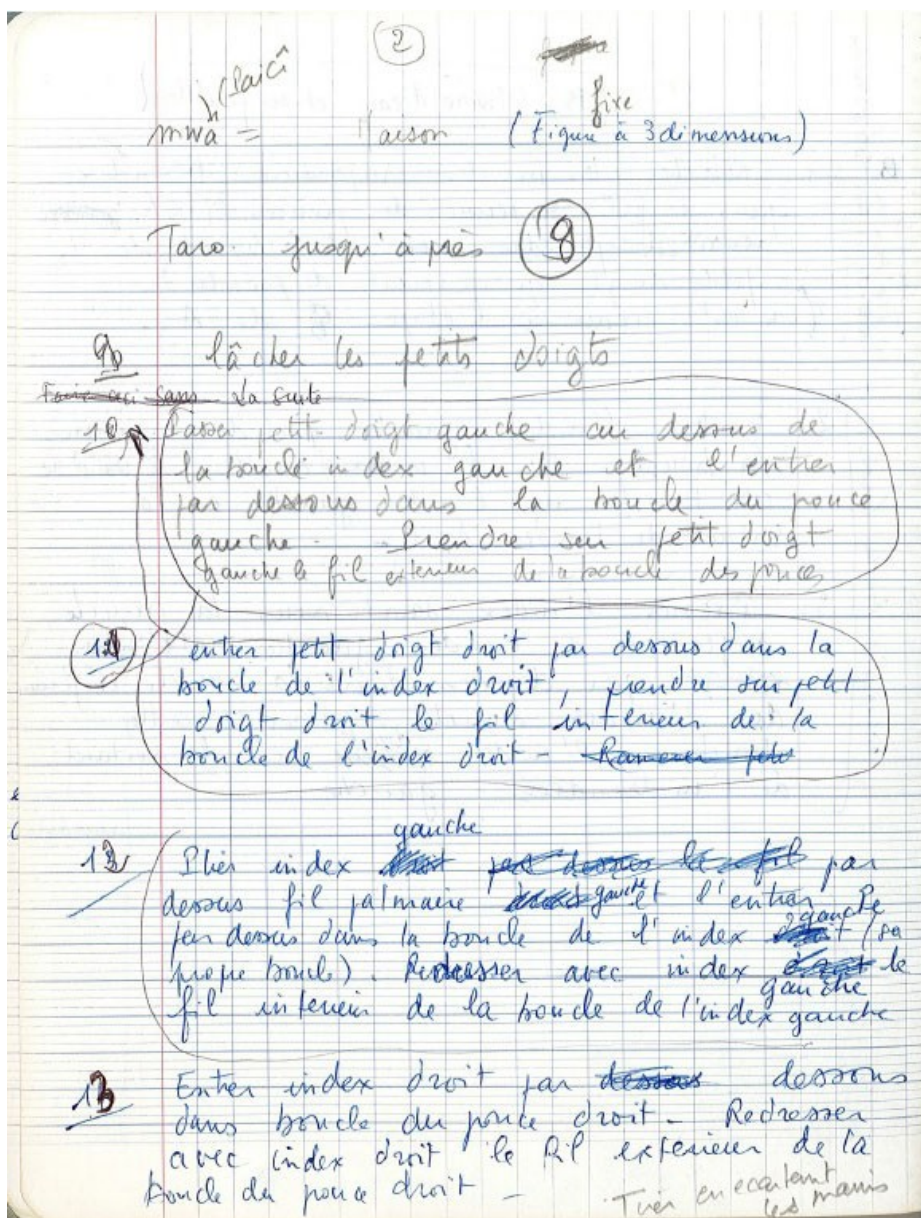 2
(Paicî
fire
mwâ = Maison (Figure à 3 dimensions)
Taro jusqu'à près 8
9 lâcher les petits doigts
Faire ceci sans La suite
10 Passer petit doigt gauche au dessus de
la boucle index gauche et l'entrer
par dessous dans la boucle du pouce
gauche. Prendre sur petit doigt
gauche le fil exterieur de la boucle des pouces
11 entrer petit doigt droit par dessous dans la
boucle de l'index droit, prendre sur petit
doigt droit le fil interieur de la
boucle de l'index droit - Ramener
gauche
12 Plier index par dessus le fil par
dessus fil palmaire gauche et l'entrer
par dessus dans la boucle de l'index gauche (sa
propre boucle). Redresser avec index gauche le
fil interieur de la boucle de l'index gauche
13 Entrer index droit par dessous
dans boucle du pouce droit - Redresser
avec index droit le fil exterieur de la
boucle du pouce droit - Tirer en ecartant
les mains